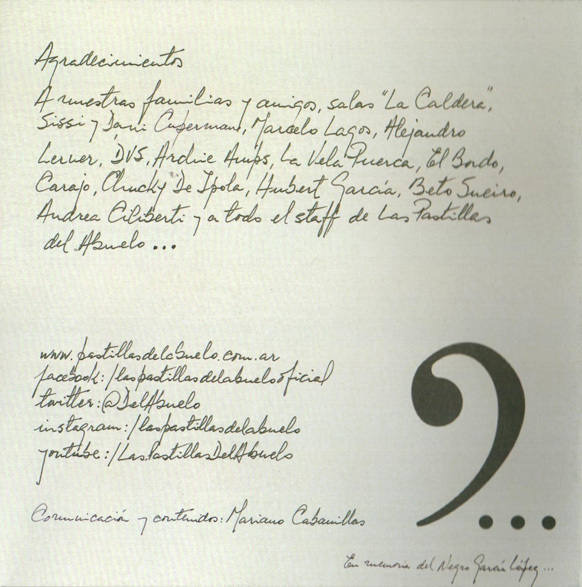 Agradecimientos
A nuestras familias y amigos, salas "La Caldera",
Sissi y Dani Cuperman, Marcelo Lagos, Alejandro
Lerner, DVS, Archie Amps, La Vela Puerca, El Bordo,
Carajo, Chucky De Ipola, Humbert García, Beto Sueiro,
Andrea Ciliberti y a todo el staff de Las Pastillas
del Abuelo...
www.pastillasdelabuelo.com.ar
facebook:/laspastillasdelabuelooficial
twitter:@DelAbuelo
instagram:/laspastillasdelabuelo
youtube:/LasPastillasDelAbuelo
Comunicación y contenidos: Mariano Cabanillas
En memoria del Negro García López...